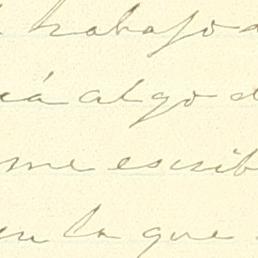 trabajo d
iá algo d
me escrib
en la que